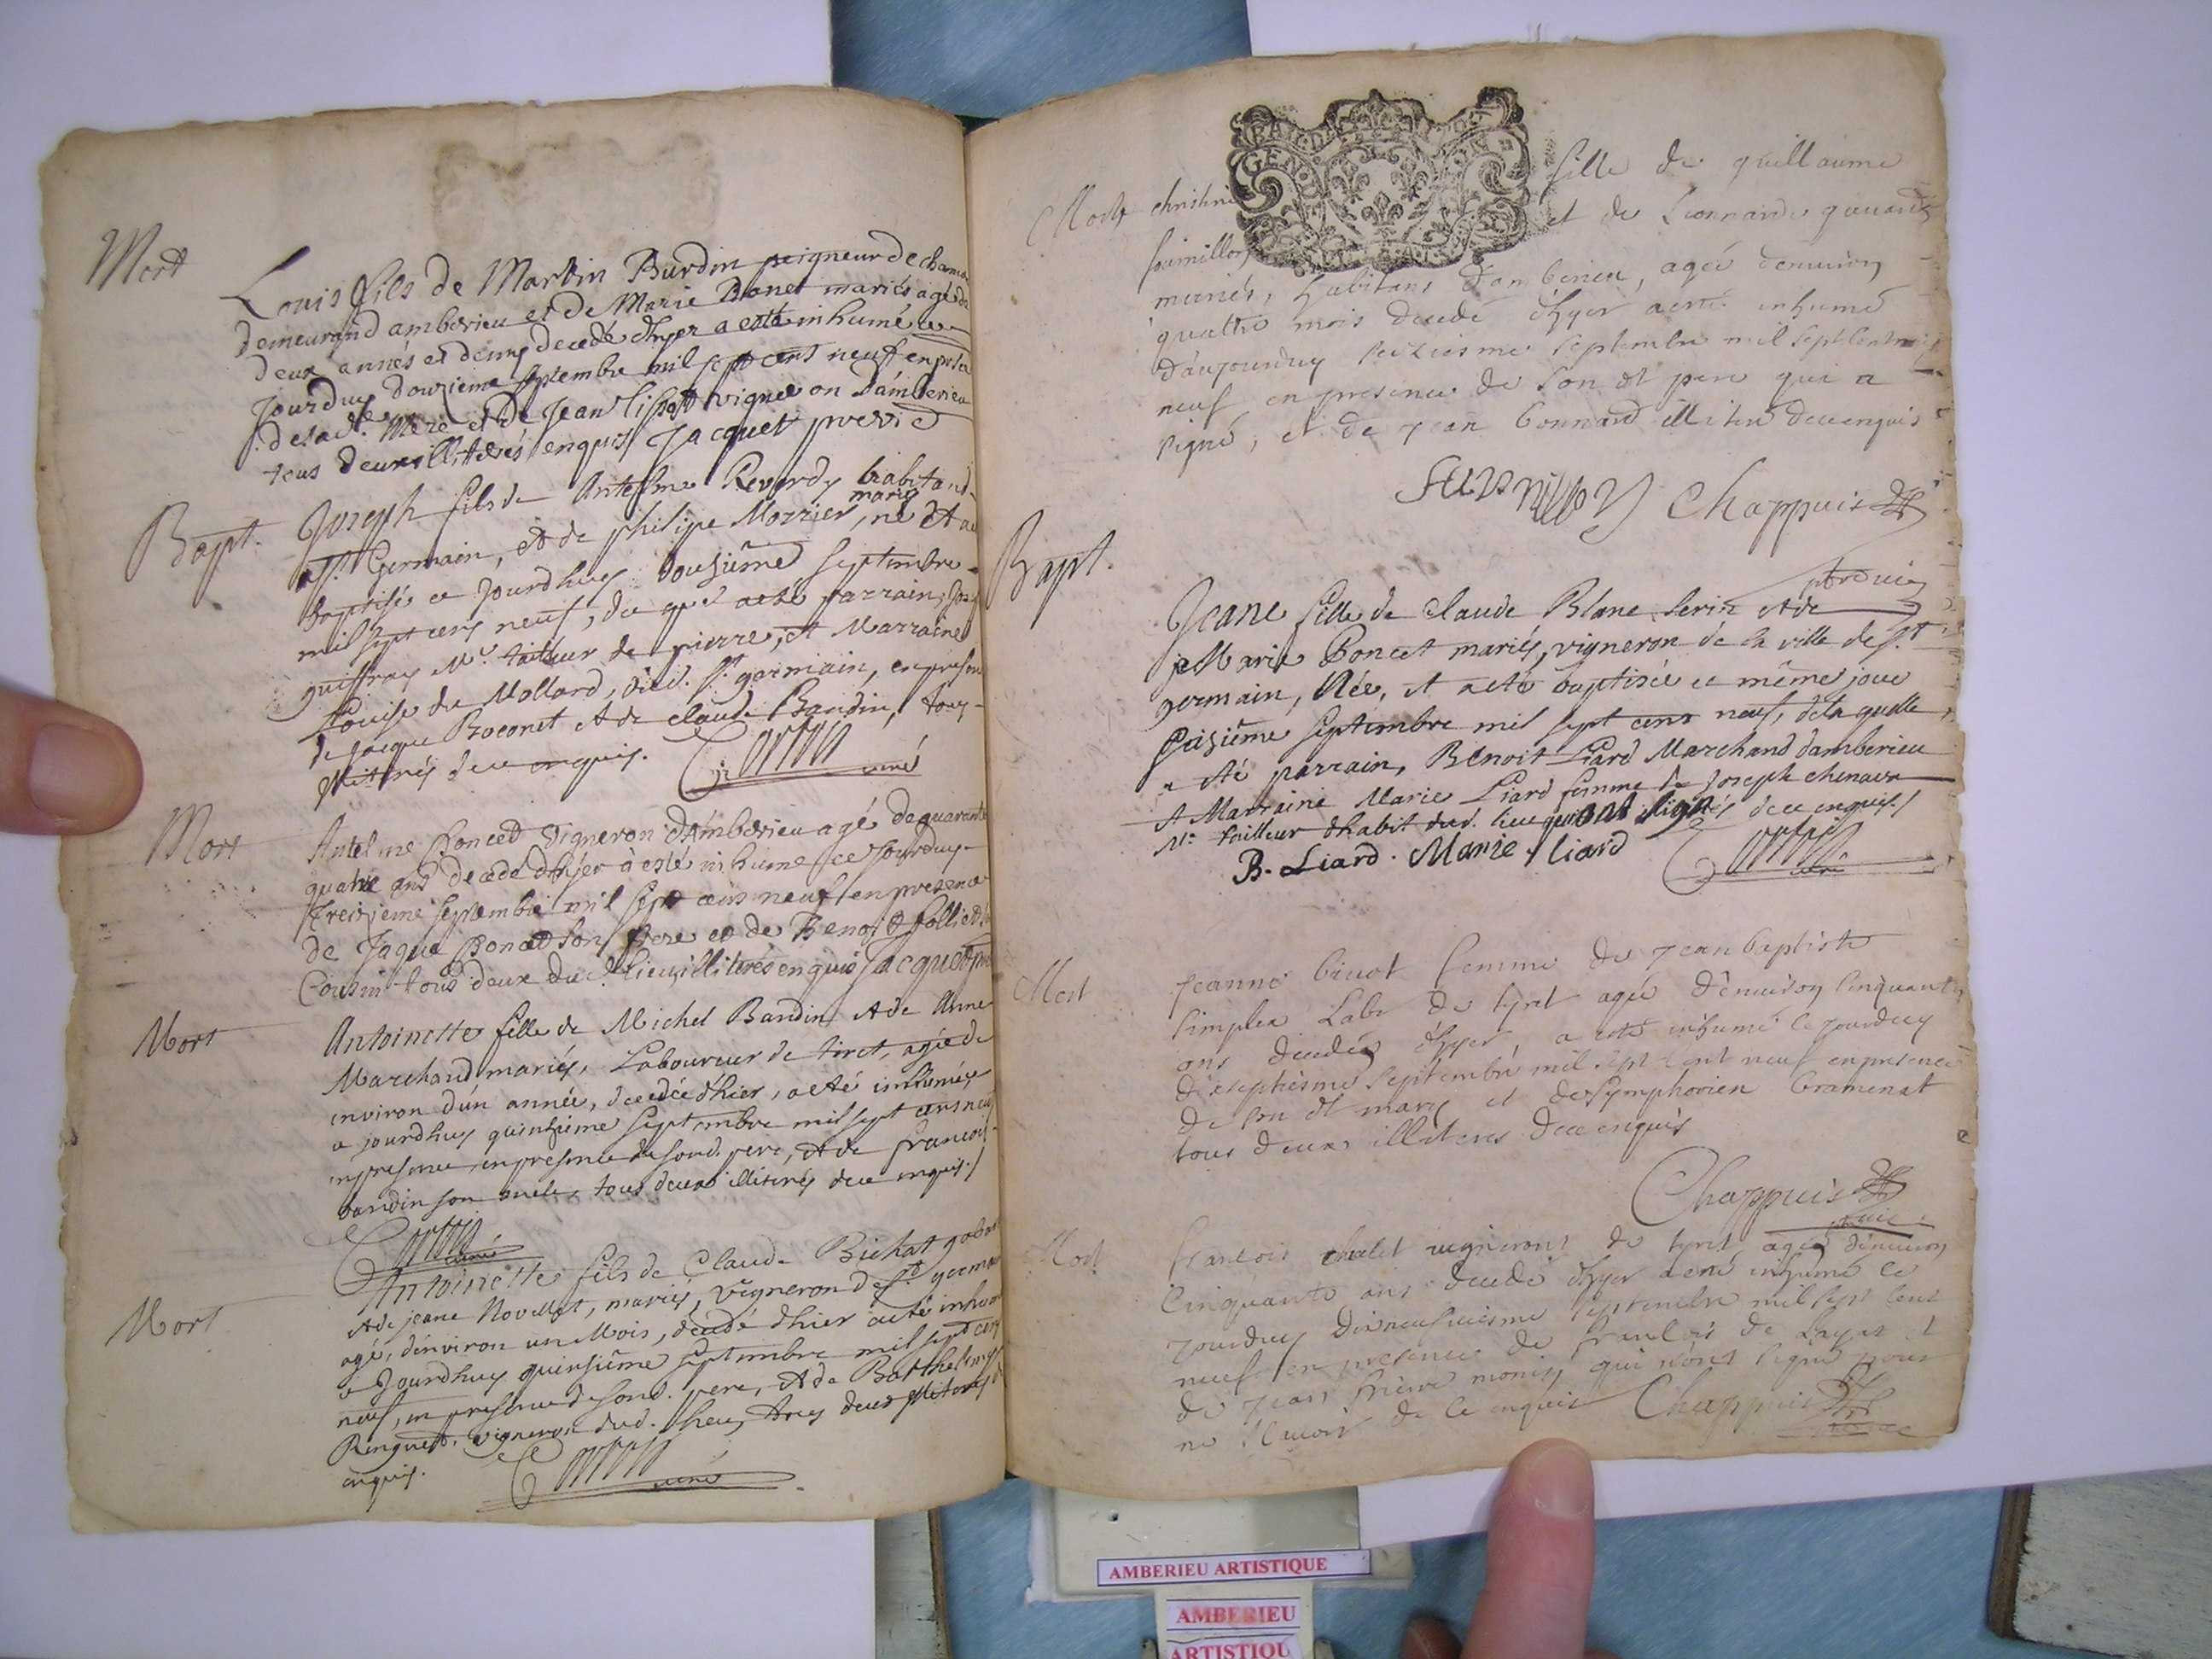 Mort
Louis fils de Martin Burdin peigneur de chanvre
demeurand amberieu et de Marie Bonet mariés agé de
deux annés et demy decedé dhyer a esté inhumé ce
jourduy douzieme septembre mil sept cens neuf en presence
de sad.te Mere et de Jean vigneron Damberieu
tous deux illitterés enquis Jacquet
Bapt.
Joseph fils de Antelme Reverdy habitand
a St. Germain, et de philipe Morrier mariés, né et a été
baptisé ce jourdhuy douziême septembre
mil sept cens neuf, du quel a eté parrain,
guiffray Mr. tailleur de pierre, et Marraine
Louise du Mollard, dud. St. germain, en presence
de Jacque Boconet et de claude Bandin, tous
illitérés de ce enquis. curé
Mort
Antelme Poncet Vigneron d'Amberieu agé de quarante
quatre ans decedé dhyer à esté inhumé ce jourduy
treizieme septembre mil sept cens neuf en presence
de Jaque Poncet son frere et de Benoit folliet
Cousin tous deux dud. lieu illiterés enquis Jacquet
Mort
Antoinette fille de Michel Bandin et de Anne
Marchand mariés, Laboureur de tiret, agée de
environ d'un année, decedée dhier, a eté inhumée
a jourdhuy quinzieme septembre mil sept cens neuf
en presence en presence de sond. pere, et de francois
bandin son oncle, tous deux illiterés de ce enquis./
curé
Mort
Antoinette fils de Claude Bichat
et de jeane Novellet, mariés, vigneron de St. germain
agé, d'environ un Mois, decedé dhier a eté inhumé
a Jourdhuy quinsiême septembre mil sept cens
neuf, en presence de sond. pere, et de Barthelemy
Ringuet, vigneron dud. lieu, tous deux illiterés de
enquis.
curé
GEN
Mort christine fille de guillaume
fournillon et de Leonarde
mariés, habitans d'amberieu, agée denviron
quattre mois decedé dhyer a esté inhumé
d'aujourduy seiziesme septembre mil sept cent
neuf en presence de son dt pere qui a
signé, et de Jean bonnard illiteré de ce enquis
furnillon Chappuis
Bapt.
Jeane fille de claude Blanc Serin et de
Marie Poncet mariés, vigneron de la ville de St.
germain, Née, et a eté baptisée ce même jour
seiziême septembre mil sept cens neuf, de la quelle
a eté parrain, Benoit Liard Marchand damberieu
et Marraine Marie Liard femme de Joseph chenavar
Mr. tailleur dhabit dud. lieu qui ont signés de ce enquis./
B. Liard. Marie liard curé
Mort
Jeanne femme de Jean baptiste
simplex Labr de tyret agée d'enuiron cinquante
ans decedée dhyer, a esté inhumé ce jourduy
dixseptiesme septembre mil sept cent neuf en presence
de son dt mary et de symphorien bramenat
tous deux illiteres de ce enquis
Chappuis
Mort
francois vigneront de tyret agé d'enuiron
Cinquante ans decedé dhyer a esté inhumé ce
jourduy dixneufuiesme septembre mil sept cens
neuf en presence de francois de et
de Jean qui n'ont signé pour
ne sçauoir de ce enquis Chappuis
AMBERIEU ARTISTIQUE
AMBERIEU
ARTISTIQU